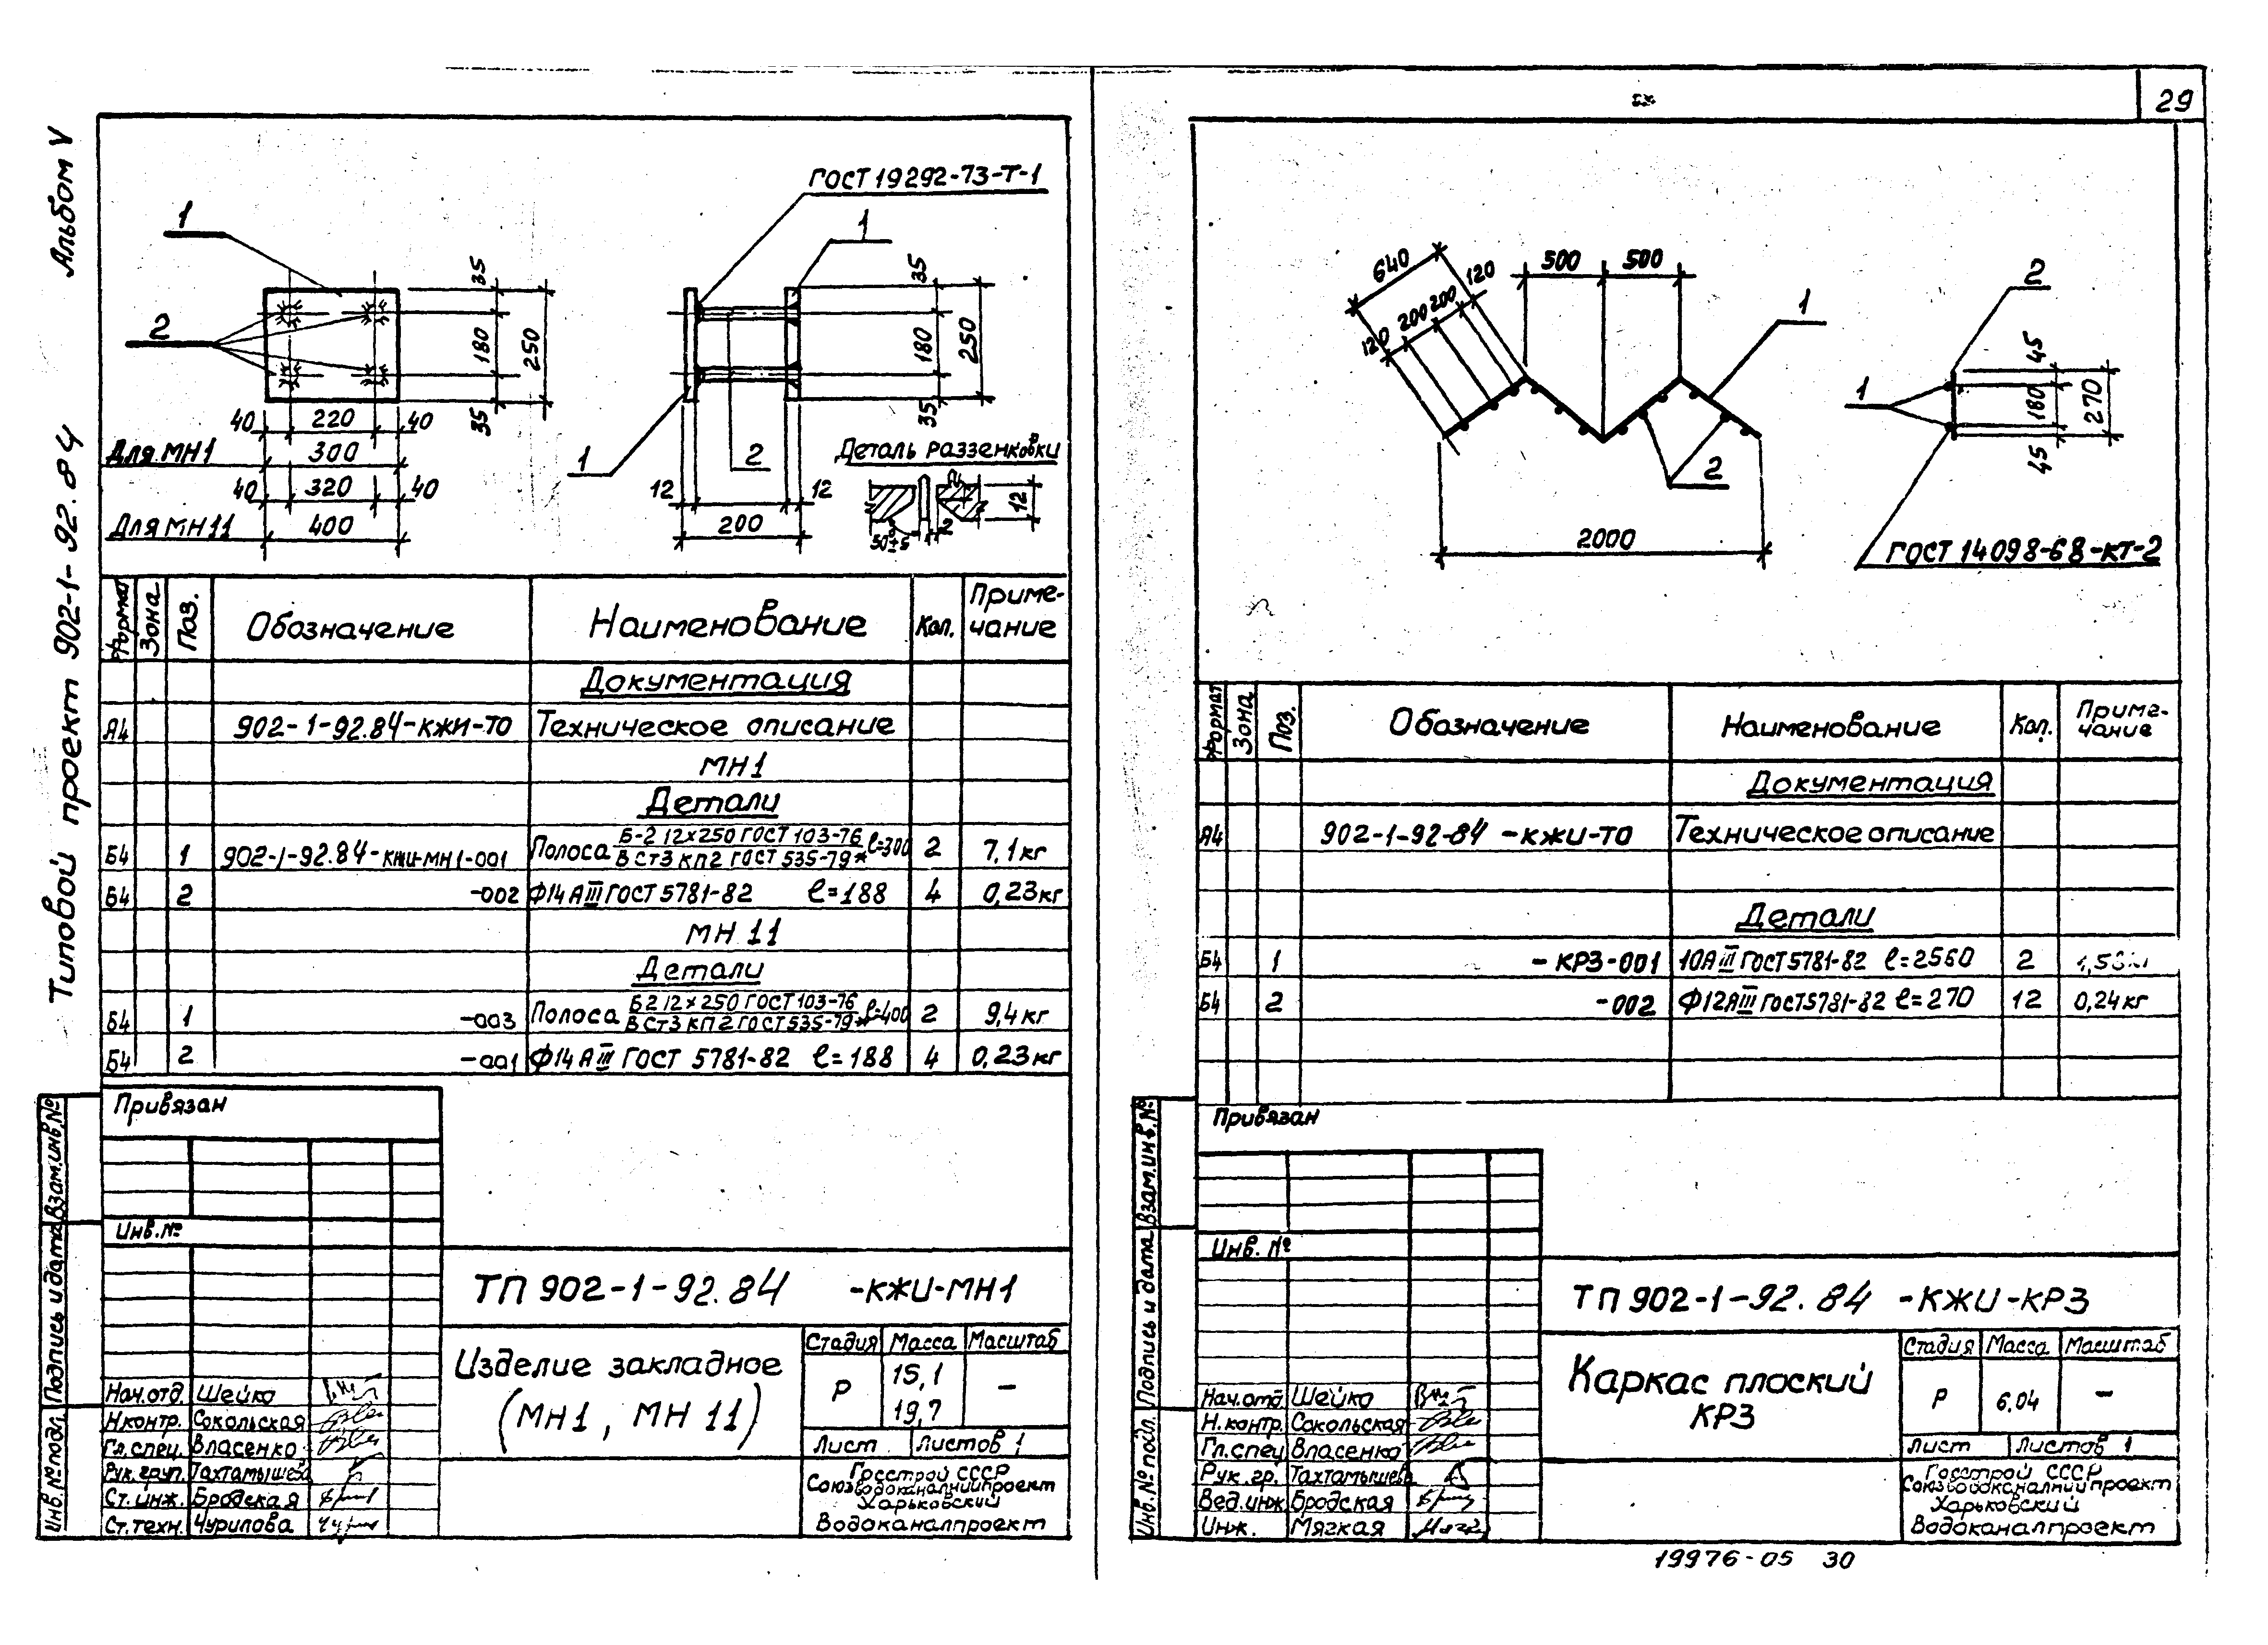 Альбом V
Типовой проект 902-1-92.84
29
ГОСТ 19292-73-Т-1
1
1
2
35
180
250
35
40 220 40
Для МН1 300
40 320 40
Для МН11 400
35
180
250
35
1
2
12 12
200
Деталь раззенковки
12
50°±5
2
Формат Зона Поз. Обозначение Наименование Кол. Примечание
Документация
А4 902-1-92.84-КЖИ-ТО Техническое описание
МН1
Детали
Б4 1 902-1-92.84-КЖИ-МН1-001 Полоса Б-2 12×250 ГОСТ 103-76 / ВСт3КП2 ГОСТ 535-79* ℓ=300 2 7,1кг
Б4 2 -002 Ф14АIII ГОСТ 5781-82 ℓ=188 4 0,23кг
МН 11
Детали
Б4 1 -003 Полоса Б2 12×250 ГОСТ 103-76 / ВСт3КП2 ГОСТ 535-79* ℓ=400 2 9,4кг
Б4 2 -001 Ф14АIII ГОСТ 5781-82 ℓ=188 4 0,23кг
Привязан
Инв.№
Взам.инв.№
Подпись и дата
Инв.№подл.
ТП 902-1-92.84 -КЖИ-МН1
Изделие закладное
(МН1, МН 11)
Стадия Масса Масштаб
Р 15,1 –
19,7
Лист Листов 1
Нач.отд. Шейко
Н.контр. Сокольская
Гл.спец. Власенко
Рук.груп. Тахтамышева
Ст.инж. Бродская
Ст.техн. Чурилова
Госстрой СССР
Союзводоканалниипроект
Харьковский
Водоканалпроект
640
120 200 200 120
500 500
1
2
2000
2
1
45
180
270
45
ГОСТ 14098-68-КТ-2
Формат Зона Поз. Обозначение Наименование Кол. Примечание
Документация
А4 902-1-92-84-КЖИ-ТО Техническое описание
Детали
Б4 1 -КР3-001 10АIII ГОСТ 5781-82 ℓ=2560 2
Б4 2 -002 Ф12АIII ГОСТ 5781-82 ℓ=270 12 0,24кг
Привязан
Инв. №
Взам.инв.№
Подпись и дата
Инв.№подл.
ТП 902-1-92.84 -КЖИ-КР3
Каркас плоский
КР3
Стадия Масса Масштаб
Р 6,04 –
Лист Листов 1
Нач.отд Шейко
Н.контр. Сокольская
Гл.спец Власенко
Рук.гр. Тахтамышева
Вед.инж Бродская
Инж. Мягкая
Госстрой СССР
Союзводоканалниипроект
Харьковский
Водоканалпроект
19976-05 30